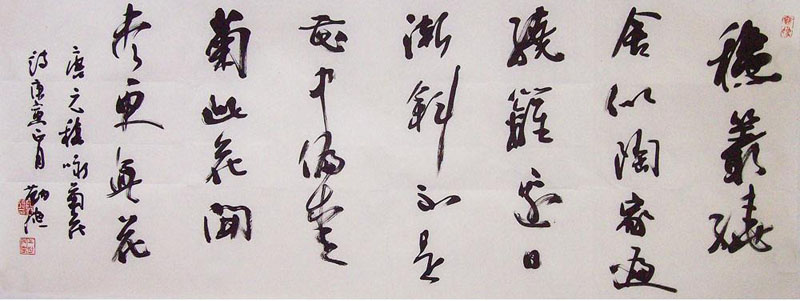 穐叢繞
舍似陶家遍
繞籬邊日
漸斜不是
花中偏愛
菊此花開
盡更無花
唐元稹咏菊花
詩庚寅正月